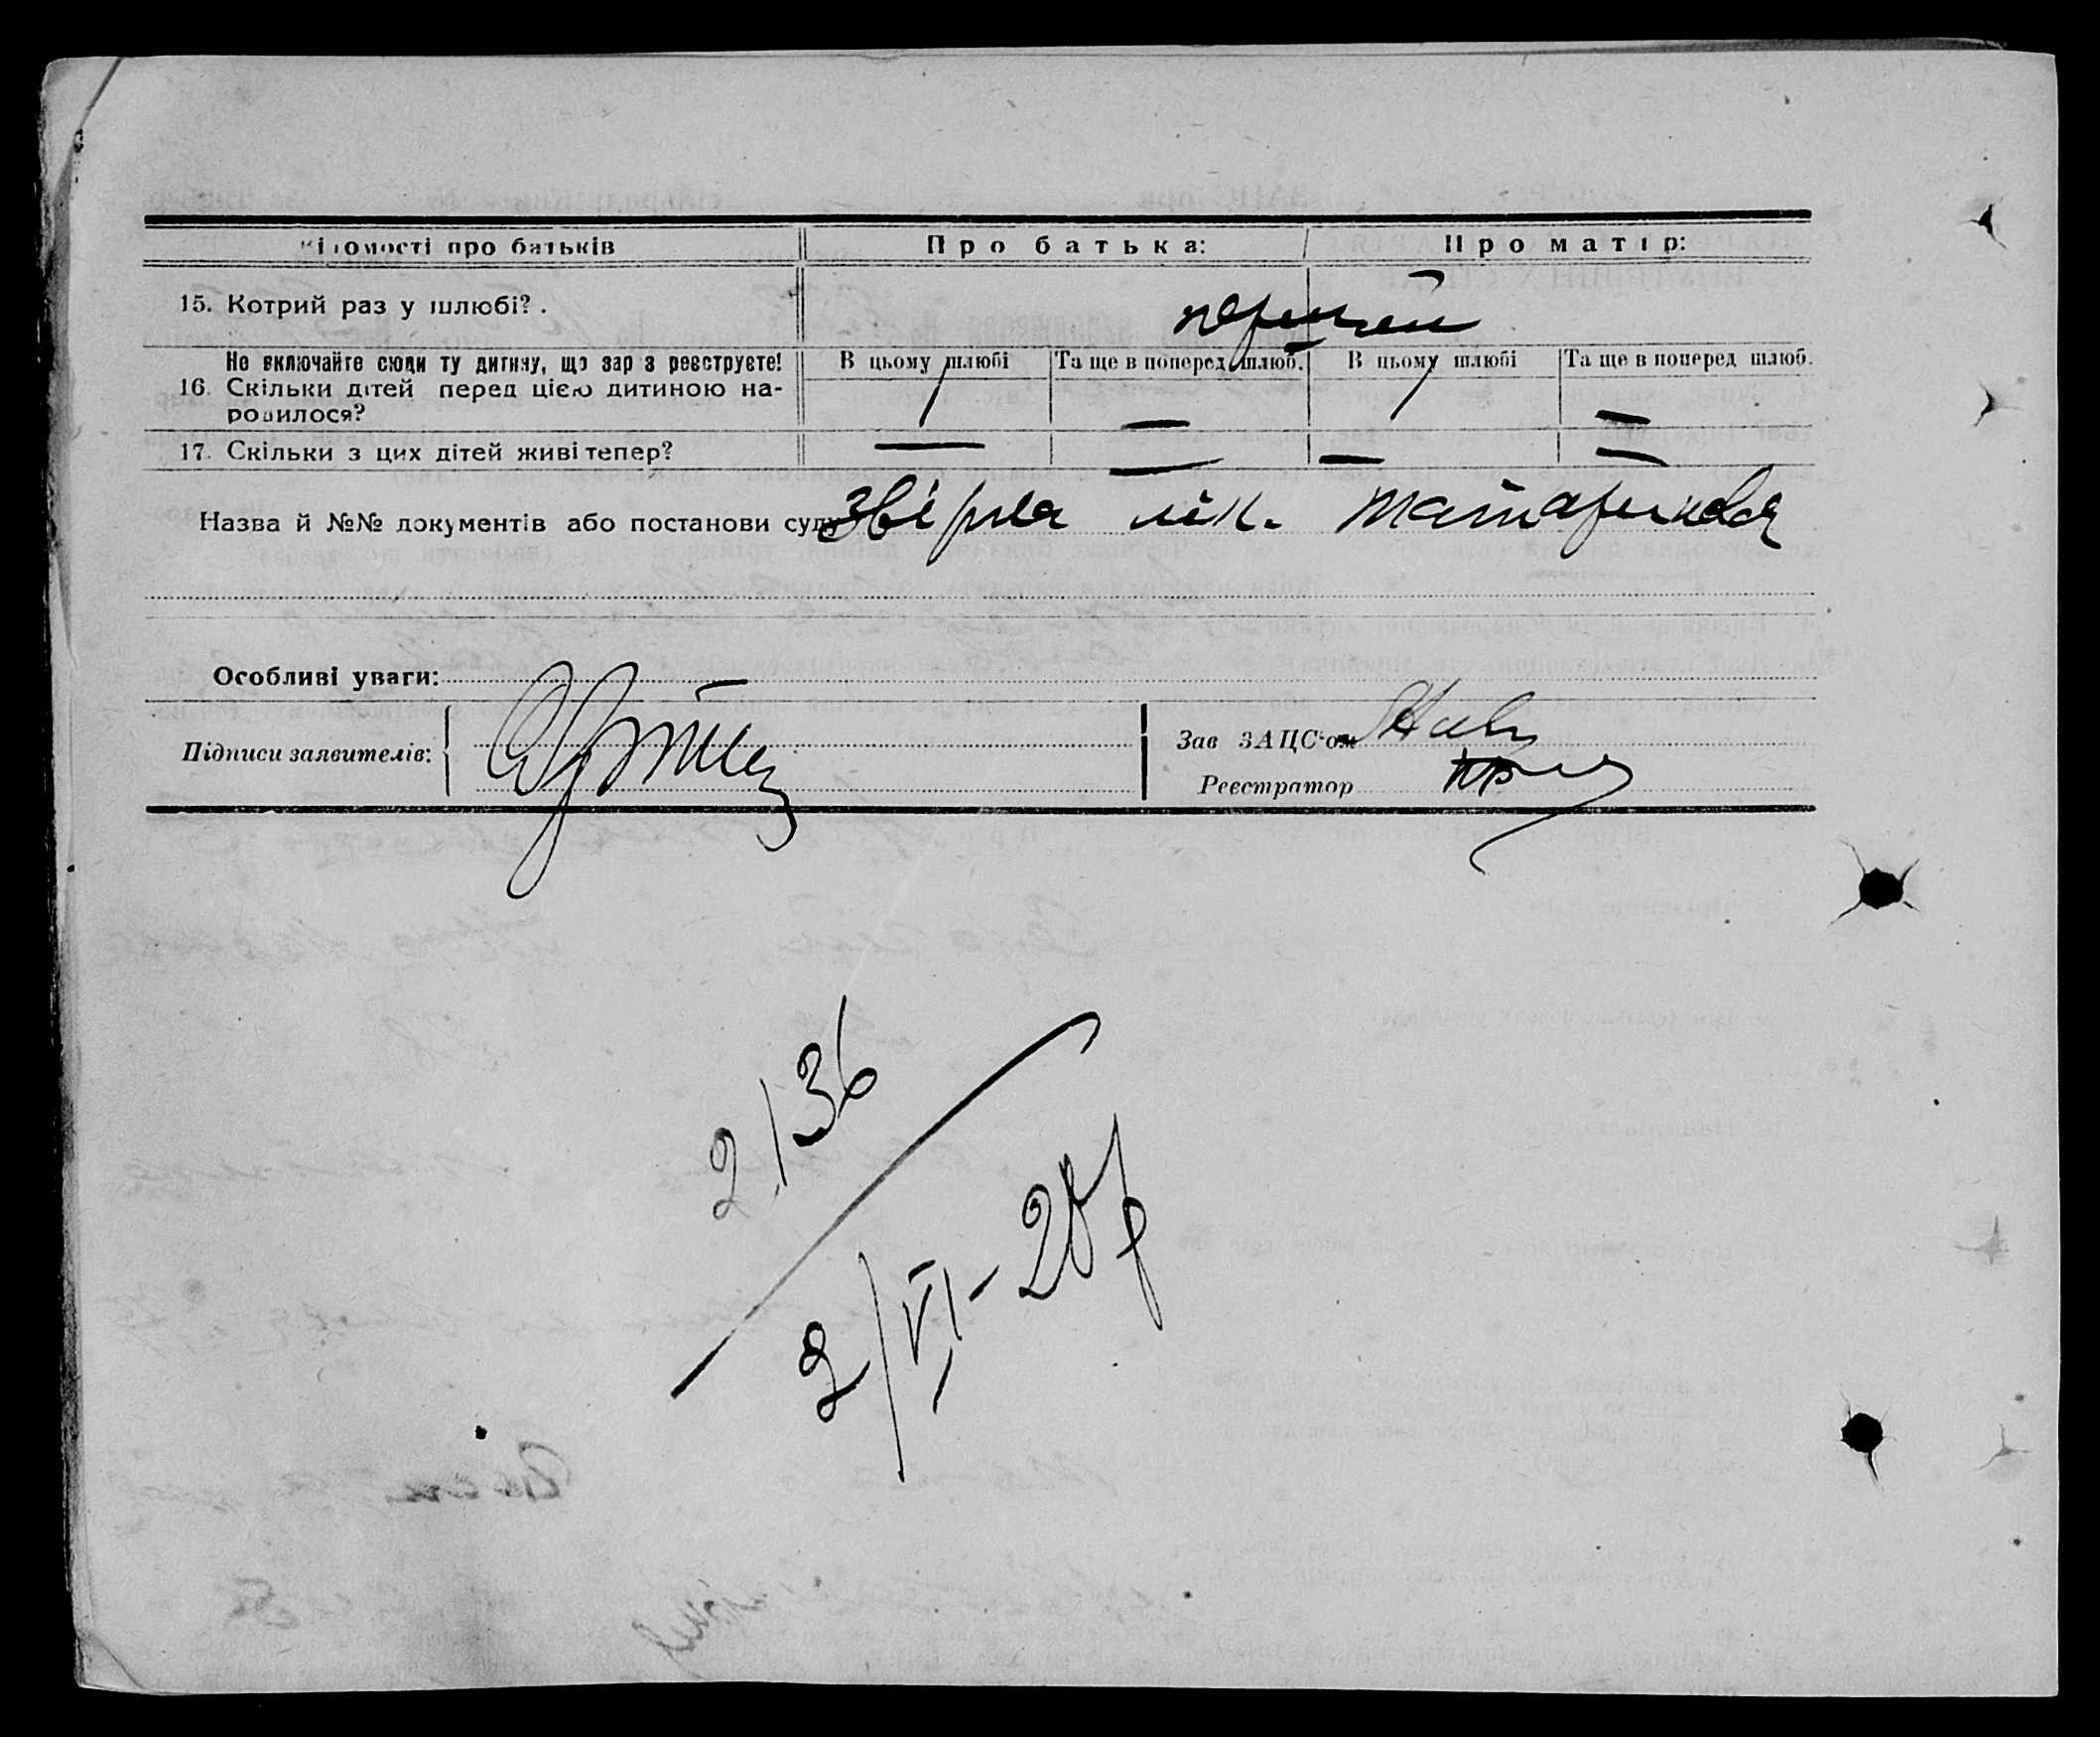 Відомості про батьків Про батька: Про матір:
15. Котрий раз у шлюбі? .
Не включайте сюди ту дитину, що зараз реєструєте! В цьому шлюбі Та ще в поперед шлюб. В цьому шлюбі Та ще в поперед шлюб.
16. Скільки дітей перед цією дитиною на-
родилося? 1 — 1 —
17. Скільки з цих дітей живі тепер? — — — —
Назва й №№ документів або постанови суду
Особливі уваги:
Підписи заявителів: Зав ЗАЦС'ом
Реєстратор
2136
2/VI-28р